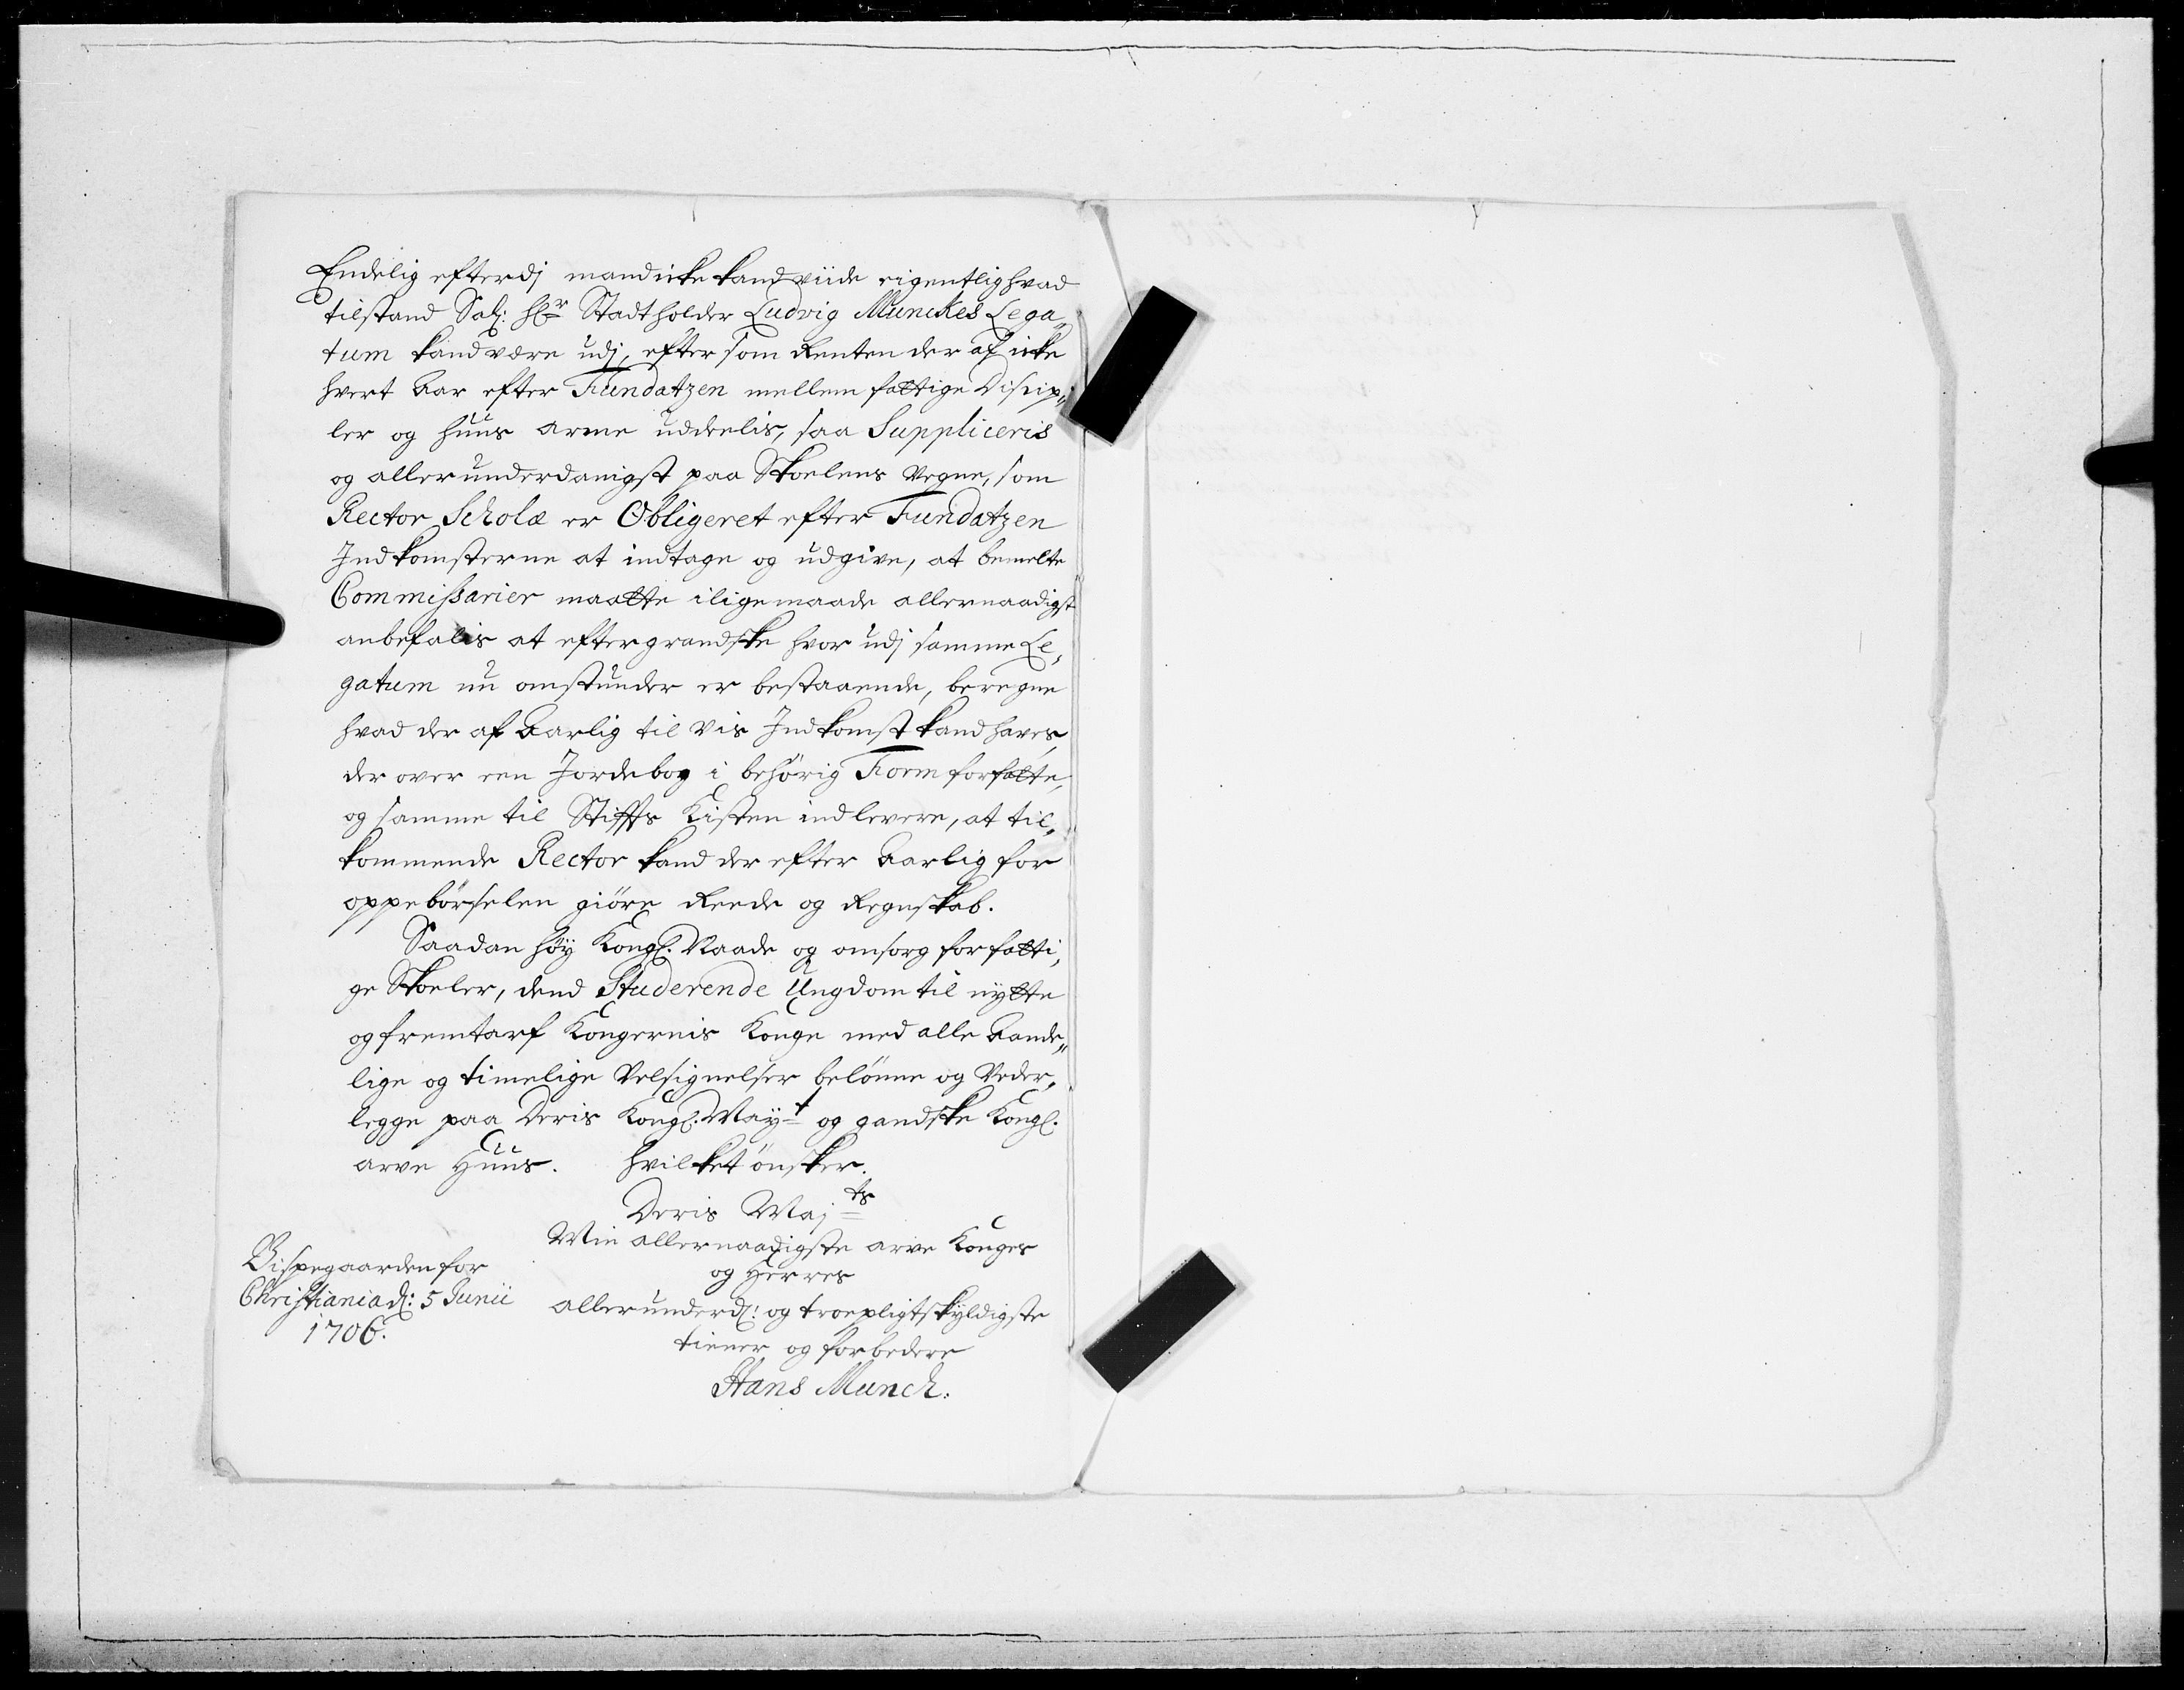 Endelig efterdj mand icke kand viide eigentlig hvad
tilstand Sal: Hr Stadtholder Ludvig Munckes Lega„
tum kand være udj, efter som Renten der af icke
hvert Aar efter Fundatzen mellem fattige Discip„
ler og huus arme uddeelis, saa Suppliceris
og allerunderdanigst paa Skoelens Vegne, som
Rector Scholæ er Obligeret efter Fundatzen
Indkomsterne at indtage og udgive, at bemelte
Commissarier maatte iligemaade allernaadigst
anbefalis at eftergrandske hvor udj samme Le„
gatum nu omstunder er bestaaende, beregne
hvad der af Aarlig til vis Indkomst kand haves,
der over een Jordebog i behörig Form forfatte,
og samme til Stiffts Kisten indlevere, at til„
kommende Rector kand der efter Aarlig for
oppebörselen giöre Reede og Regnskab.
Saadan höy Kongl. Naade og omsorg for fatti„
ge Skoeler, dend Studerende Ungdom til nytte
og fremtarf Kongernis Konge med alle Aande„
lige og timelige Velsignelser belönne og Veder„
legge paa Deris Kongl. Mayt og gandske Kongl.
arve Huus. Hvilket önsker.
Deris Majts
Min allernaadigste arve Konges
og Herres
Bispegaarden for
Christiania d: 5 Junii
1706.
allerunderd: og troepligtskyldigste
tiener og forbedere
Hans Munch.